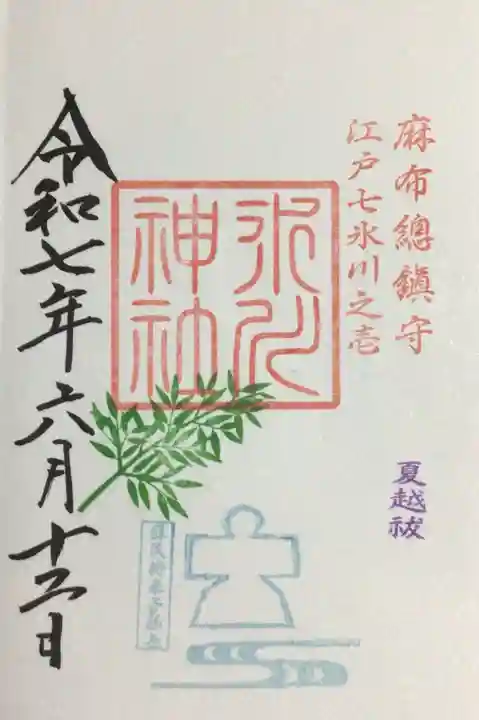 麻布總鎮守
江戸七氷川之壱
夏越祓
氷川
神社
令和七年六月十六日